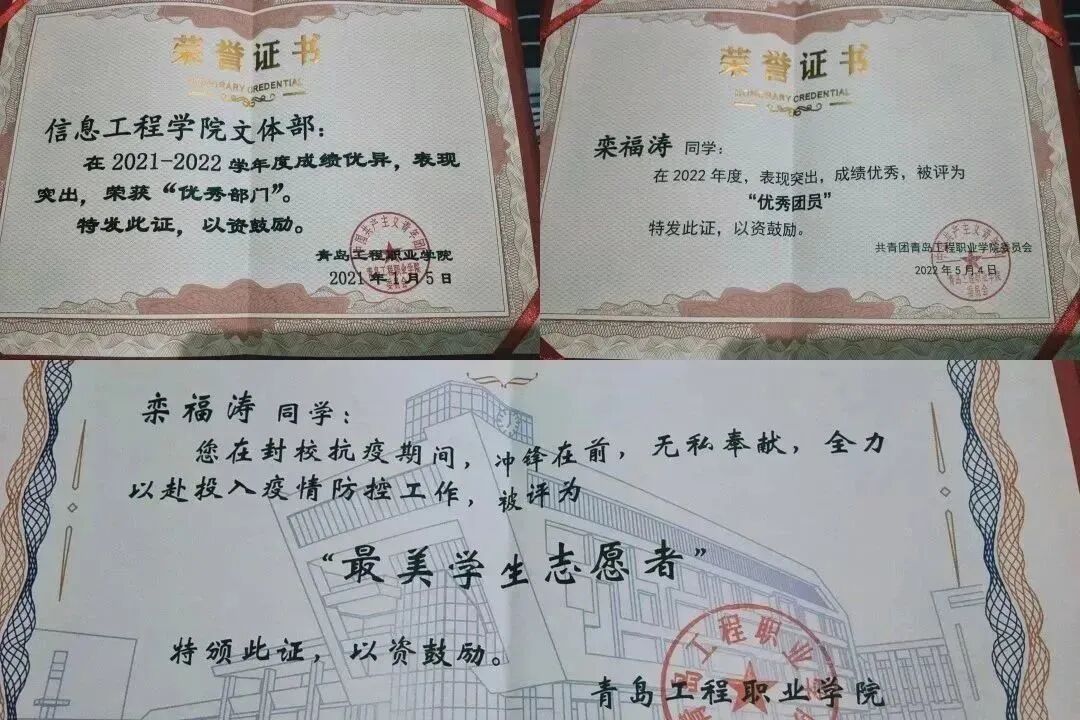 荣誉证书
HONORARY CREDENTIAL
信息工程学院文体部：
在2021-2022学年度成绩优异，表现
突出，荣获“优秀部门”。
特发此证，以资鼓励。
青岛工程职业学院
2021年1月5日
荣誉证书
HONORARY CREDENTIAL
栾福涛 同学：
在2022年度，表现突出，成绩优秀，被评为
“优秀团员”
特发此证，以资鼓励。
共青团青岛工程职业学院委员会
2022年5月4日
栾福涛 同学：
您在封校抗疫期间，冲锋在前，无私奉献，全力
以赴投入疫情防控工作，被评为
“最美学生志愿者”
特颁此证，以资鼓励。
青岛工程职业学院